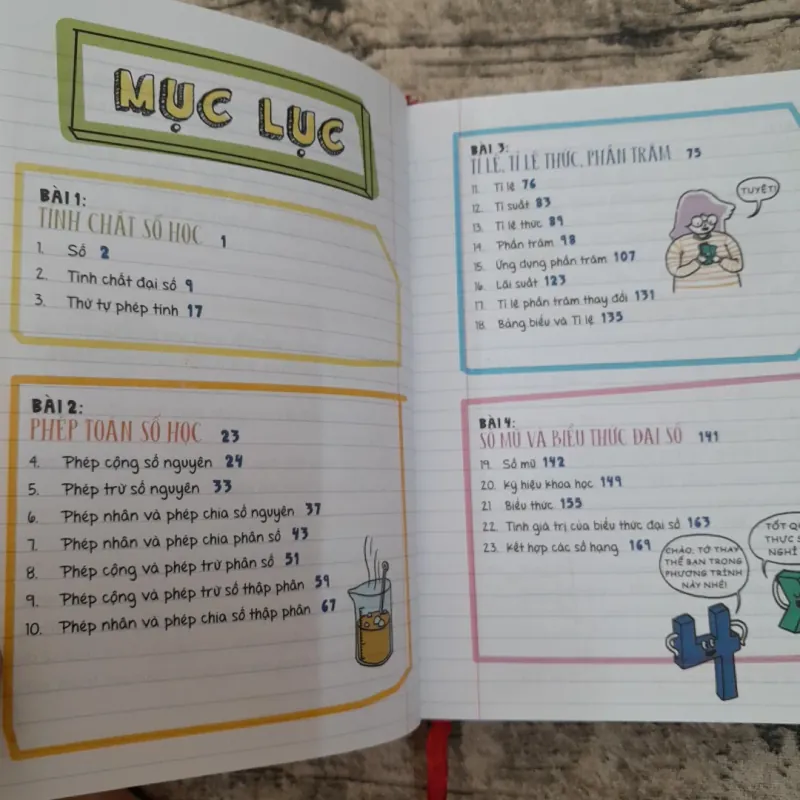 MỤC LỤC
BÀI 1:
TÍNH CHẤT SỐ HỌC 1
1. Số 2
2. Tính chất đại số 9
3. Thứ tự phép tính 17
BÀI 2:
PHÉP TOÁN SỐ HỌC 23
4. Phép cộng số nguyên 24
5. Phép trừ số nguyên 33
6. Phép nhân và phép chia số nguyên 37
7. Phép nhân và phép chia phân số 43
8. Phép cộng và phép trừ phân số 51
9. Phép cộng và phép trừ số thập phân 59
10. Phép nhân và phép chia số thập phân 67
BÀI 3:
TỈ LỆ, TỈ LỆ THỨC, PHẦN TRĂM 75
11. Tỉ lệ 76
12. Tỉ suất 83
13. Tỉ lệ thức 89
14. Phần trăm 98
15. Ứng dụng phần trăm 107
16. Lãi suất 123
17. Tỉ lệ phần trăm thay đổi 131
18. Bảng biểu và Tỉ lệ 135
TUYỆT!
BÀI 4:
SỐ MŨ VÀ BIỂU THỨC ĐẠI SỐ 141
19. Số mũ 142
20. Ký hiệu khoa học 149
21 Biểu thức 155
22. Tính giá trị của biểu thức đại số 163
23. Kết hợp các số hạng 169
CHÀO, TỚ THAY
THẾ BẠN TRONG
PHƯƠNG TRÌNH
NÀY NHÉ!
TỐT
THỰC
NGHỈ
4